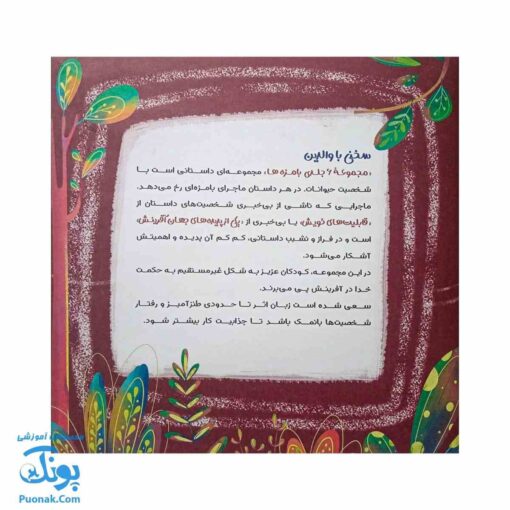 سخنی با والدین
«مجموعهٔ ۶ جلدی بامزه‌ها»، مجموعه‌ای داستانی است با
شخصیت حیوانات. در هر داستان ماجرای بامزه‌ای رخ می‌دهد.
ماجرایی که ناشی از بی‌خبری شخصیت‌های داستان از
«قابلیت‌های خویش» یا بی‌خبری از «یکی از پدیده‌های جهان آفرینش»
است و در فراز و نشیب داستانی، کم کم آن پدیده و اهمیتش
آشکار می‌شود.
در این مجموعه، کودکان عزیز به شکل غیرمستقیم به حکمت
خدا در آفرینش پی می‌برند.
سعی شده است زبان اثر تا حدودی طنزآمیز و رفتار
شخصیت‌ها بانمک باشد تا جذابیت کار بیشتر شود.
آموزشی
پونک
Puonak.Com